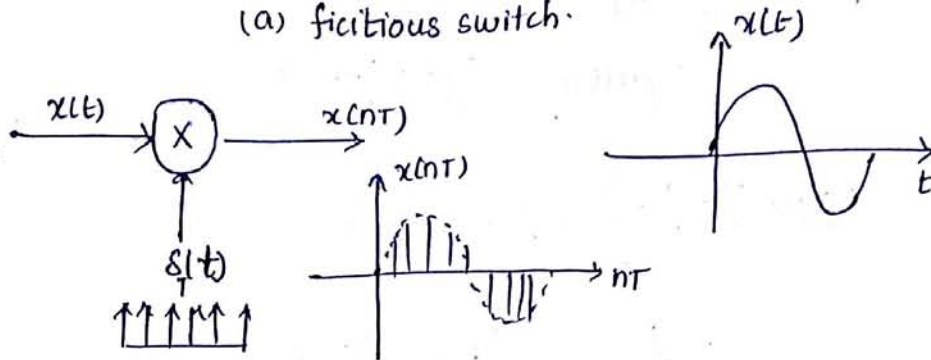 (a) ficitious switch.
x(t)
x(t)
x(nT)
x(nT)
t
δT(t)
nT